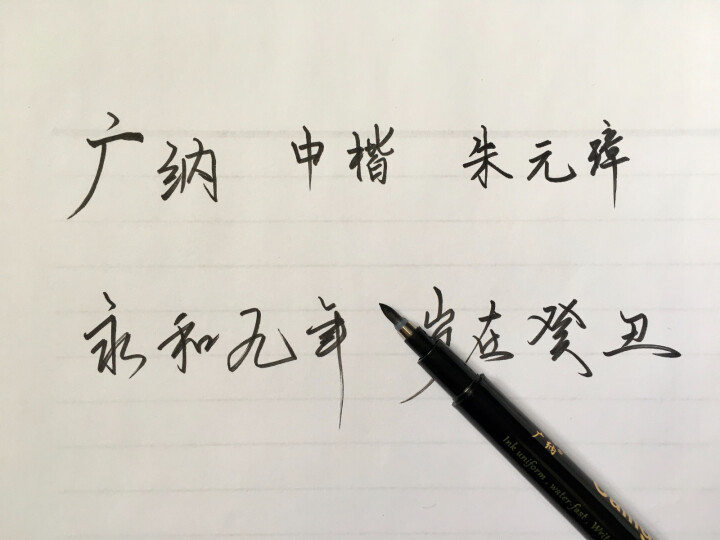 广纳 中楷 朱元璋
永和九年 岁在癸丑
广纳
Ink uniform . water fast .